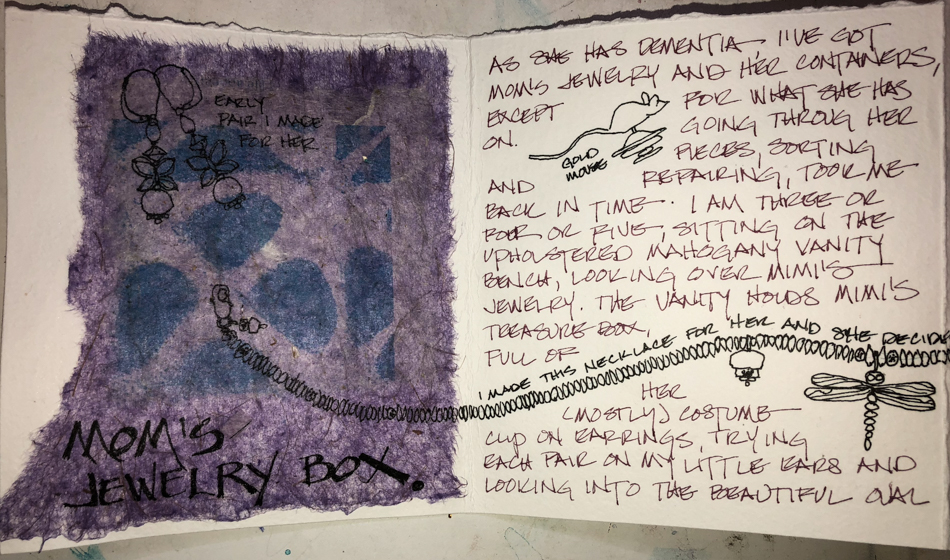 EARLY
PAIR I MADE
FOR HER
MOM'S
JEWELRY BOX.
AS SHE HAS DEMENTIA, I'VE GOT
MOM'S JEWELRY AND HER CONTAINERS,
EXCEPT FOR WHAT SHE HAS
ON. GOING THROUG HER
PIECES, SORTING
GOLD
MOUSE
AND REPAIRING, TOOK ME
BACK IN TIME. I AM THREE OR
FOUR OR FIVE, SITTING ON THE
UPHOLSTERED MAHOGANY VANITY
BENCH, LOOKING OVER MIMI'S
JEWELRY. THE VANITY HOLDS MIMI'S
TREASURE BOX,
FULL OF
I MADE THIS NECKLACE FOR HER AND SHE DECIDE
HER
(MOSTLY) COSTUME
CLIP ON EARRINGS, TRYING
EACH PAIR ON MY LITTLE EARS AND
LOOKING INTO THE BEAUTIFUL OVAL